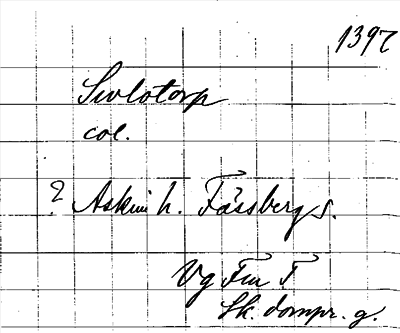 1397
Sivlotorp
col.
? Askim h. Fässbergs s.
Vg Fm F
Sk. dompr. g.